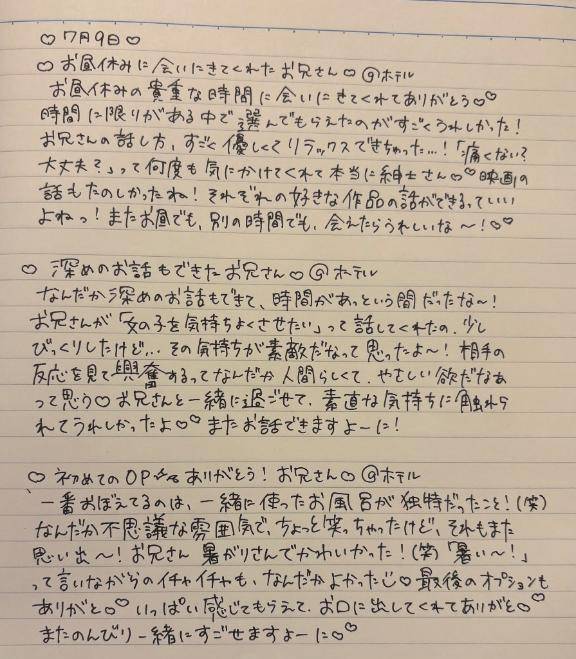 ♡ 7月9日 ♡
♡ お昼休みに会いにきてくれたお兄さん♡ @ホテル
お昼休みの貴重な時間に会いにきてくれてありがとう♡♡
時間に限りがある中で選んでもらえたのがすごくうれしかった!
お兄さんの話し方、すごく優しくてリラックスできちゃった…!「痛くない?
大丈夫?」って何度も気にかけてくれて本当に紳士さん♡♡映画の
話もたのしかったね!それぞれの好きな作品の話ができるっていい
よねっ!またお昼でも、別の時間でも、会えたらうれしいな〜!♡♡
♡ 深めのお話もできたお兄さん♡ @ホテル
なんだか深めのお話もできて、時間があっという間だったな〜!
お兄さんが「女の子を気持ちよくさせたい」って話してくれたの、少し
びっくりしたけど…その気持ちが素敵だなって思ったよ〜!相手の
反応を見て興奮するってなんだか人間らしくて、やさしい欲だなぁ
って思う♡お兄さんと一緒に過ごせて、素直な気持ちに触れら
れてうれしかったよ♡ またお話できますよーに!
♡ 初めてのOP ありがとう!お兄さん♡ @ホテル
一番おぼえてるのは、一緒に使ったお風呂が独特だったこと!(笑)
なんだか不思議な雰囲気で、ちょっと笑っちゃったけど、それもまた
思い出〜!お兄さん 暑がりさんでかわいかった!(笑)「暑い〜!」
って言いながらのイチャイチャも、なんだかよかった♡最後のオプションも
ありがと♡♡ いっぱい感じてもらえて、お口に出してくれてありがと♡♡
またのんびり一緒にすごせますよーに♡♡